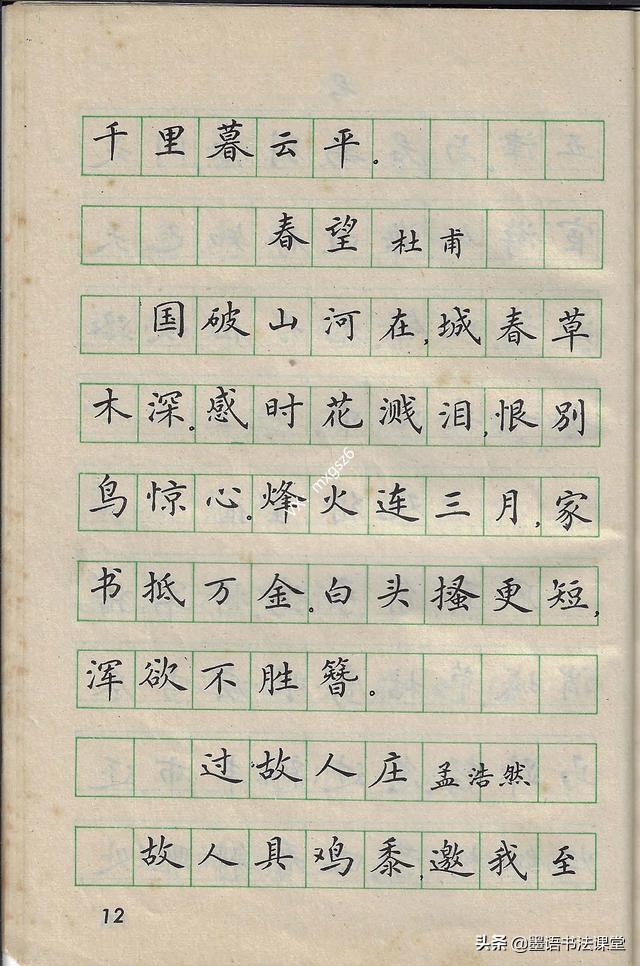 千里暮云平。
春望 杜甫
国破山河在,城春草
木深。感时花溅泪,恨别
鸟惊心。烽火连三月,家
书抵万金。白头搔更短,
浑欲不胜簪。
过故人庄 孟浩然
故人具鸡黍,邀我至
12
mxgsz6
头条 @墨语书法课堂